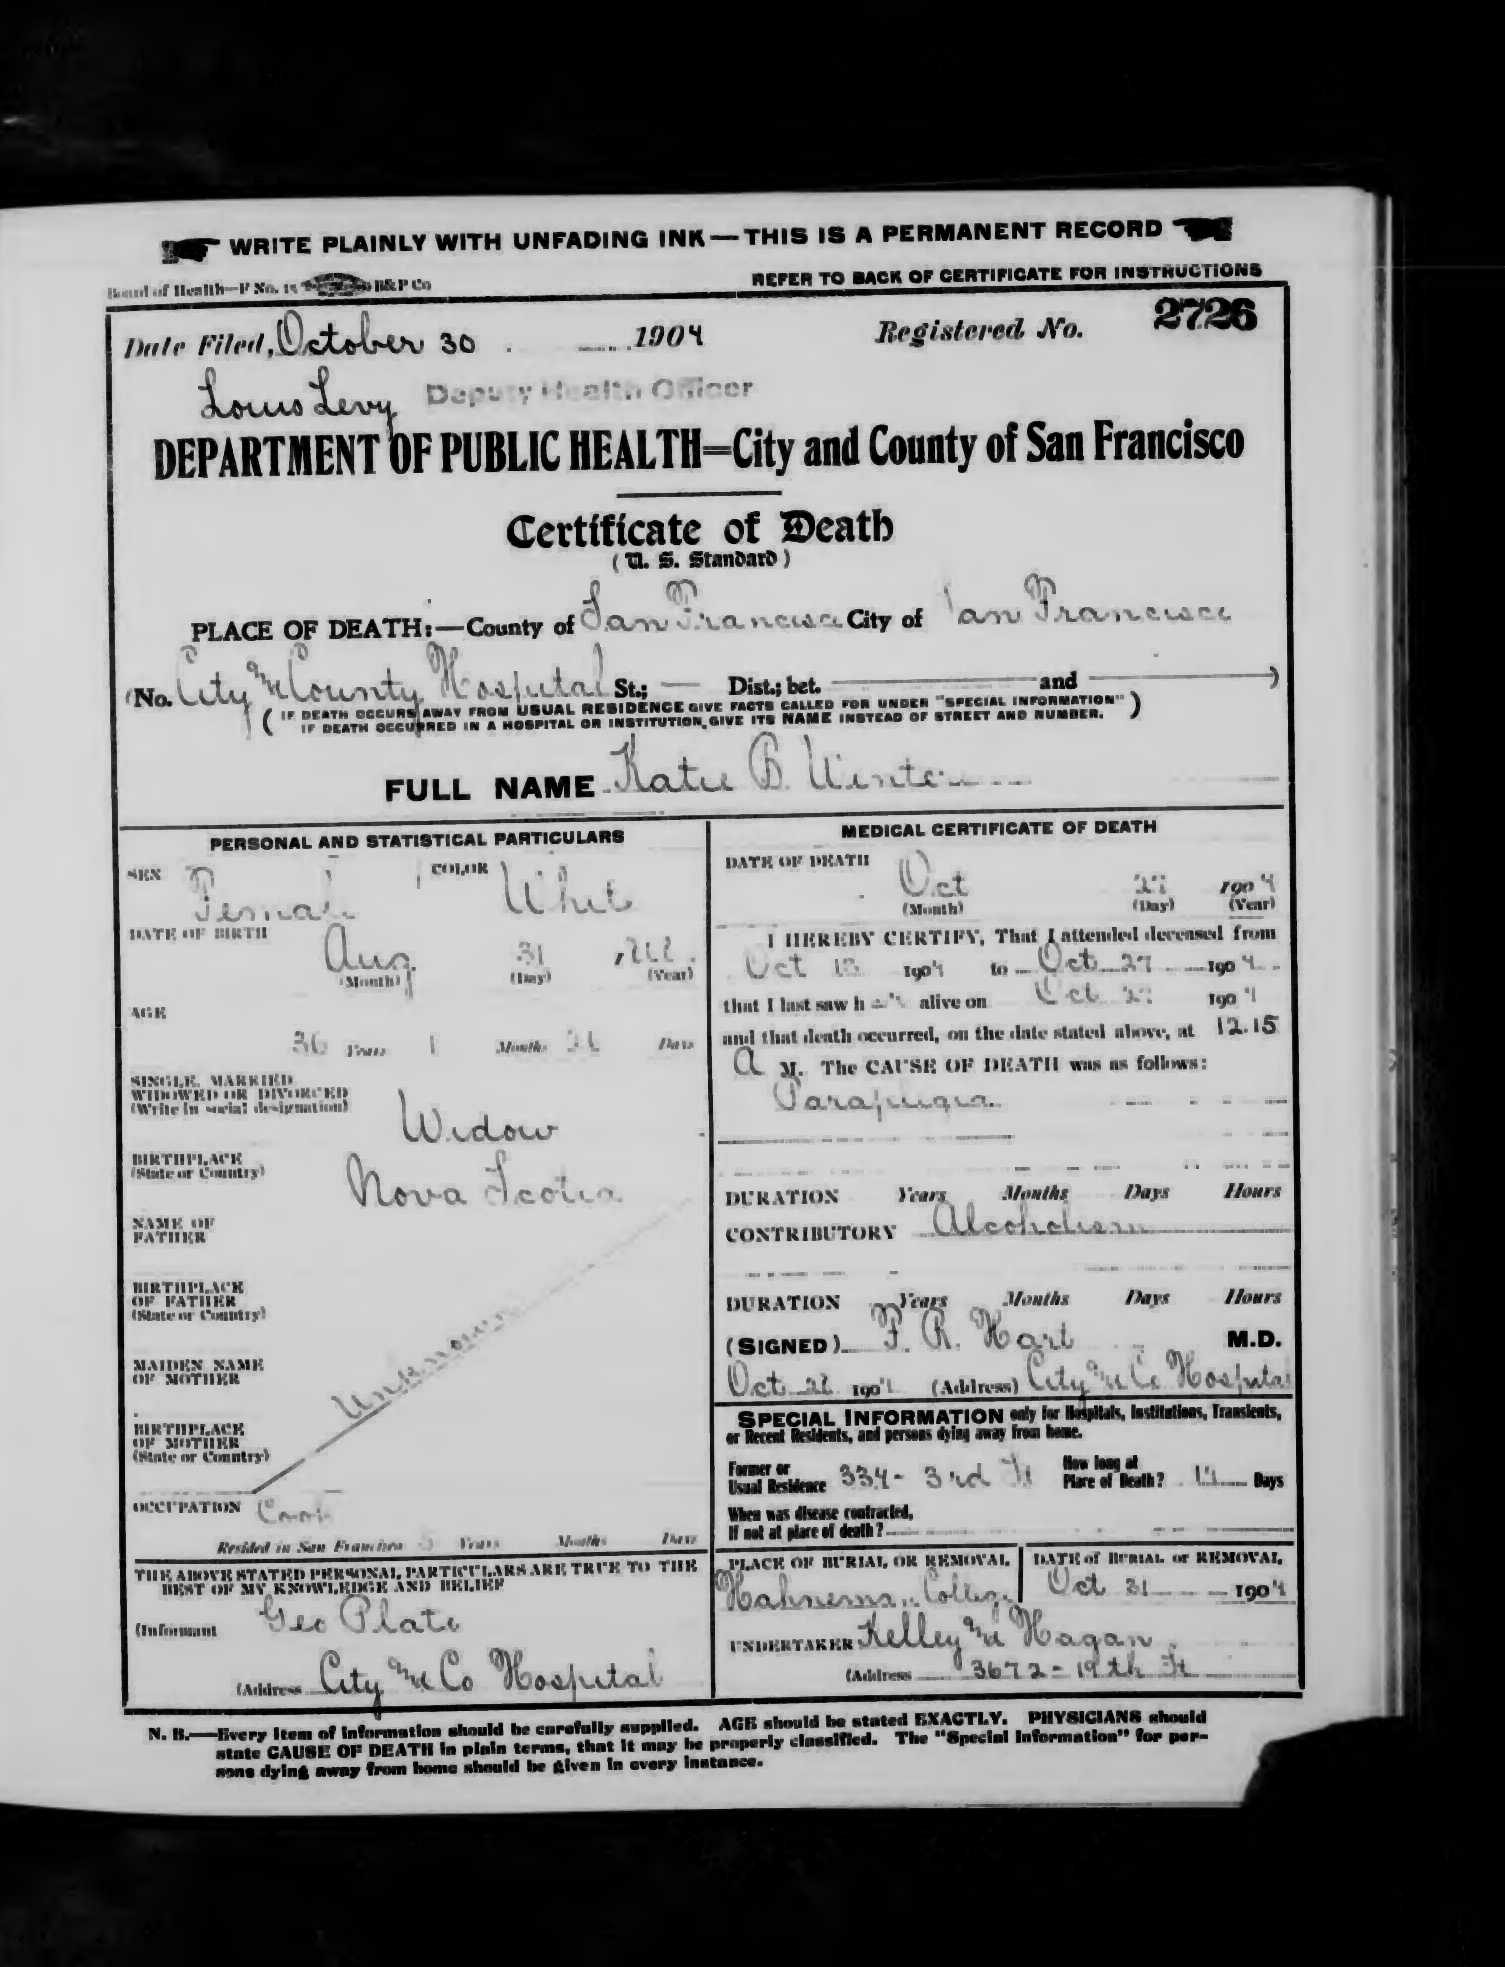 WRITE PLAINLY WITH UNFADING INK—THIS IS A PERMANENT RECORD
Board of Health—F No. 15 B&P Co
REFER TO BACK OF CERTIFICATE FOR INSTRUCTIONS
Date Filed, October 30 1904 Registered No. 2726
Louis Levy Deputy Health Officer
DEPARTMENT OF PUBLIC HEALTH=City and County of San Francisco
Certificate of Death
(U. S. Standard)
PLACE OF DEATH:—County of San Francisco City of San Francisco
(No. City and County Hospital St.; — Dist.; bet. and )
( IF DEATH OCCURS AWAY FROM USUAL RESIDENCE GIVE FACTS CALLED FOR UNDER "SPECIAL INFORMATION" )
IF DEATH OCCURRED IN A HOSPITAL OR INSTITUTION, GIVE ITS NAME INSTEAD OF STREET AND NUMBER.
FULL NAME Katie B. Winter
PERSONAL AND STATISTICAL PARTICULARS
SEX Female COLOR White
DATE OF BIRTH
Aug 31
(Month) (Day) (Year)
AGE
36 Years 1 Months Days
SINGLE, MARRIED,
WIDOWED OR DIVORCED
(Write in social designation)
Widow
BIRTHPLACE
(State or Country)
Nova Scotia
NAME OF
FATHER
BIRTHPLACE
OF FATHER
(State or Country)
MAIDEN NAME
OF MOTHER
Unknown
BIRTHPLACE
OF MOTHER
(State or Country)
OCCUPATION Cook
Resided in San Francisco Years Months Days
THE ABOVE STATED PERSONAL PARTICULARS ARE TRUE TO THE
BEST OF MY KNOWLEDGE AND BELIEF
(Informant Geo Plate
(Address City and Co Hospital
MEDICAL CERTIFICATE OF DEATH
DATE OF DEATH
Oct 27 1904
(Month) (Day) (Year)
I HEREBY CERTIFY, That I attended deceased from
Oct 13 1904 to Oct 27 1904
that I last saw h alive on Oct 27 1904
and that death occurred, on the date stated above, at 12.15
A M. The CAUSE OF DEATH was as follows:
DURATION Years Months Days Hours
CONTRIBUTORY Alcoholism
DURATION Years Months Days Hours
(SIGNED) F. R. Hart M.D.
Oct 1904 (Address) City and Co Hospital
SPECIAL INFORMATION only for Hospitals, Institutions, Transients,
or Recent Residents, and persons dying away from home.
Former or
Usual Residence 334- 3rd St
How long at
Place of Death? Days
When was disease contracted,
If not at place of death?
PLACE OF BURIAL OR REMOVAL
Hahnemann College
DATE of BURIAL or REMOVAL
Oct 31 1904
UNDERTAKER Kelley and Hagan
(Address 3672-19th St
N. B.—Every item of information should be carefully supplied. AGE should be stated EXACTLY. PHYSICIANS should
state CAUSE OF DEATH in plain terms, that it may be properly classified. The "Special Information" for per-
sons dying away from home should be given in every instance.